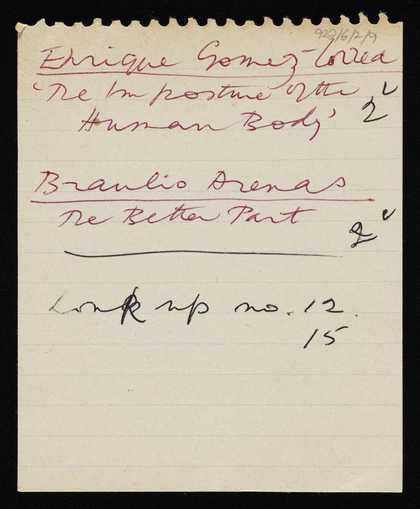 929/6/2/9
Enrique Gomez-Correa
'The Imposture of the 2"
Human Body'
Braulio Arenas
The Better Part 2"
Look up no. 12
15